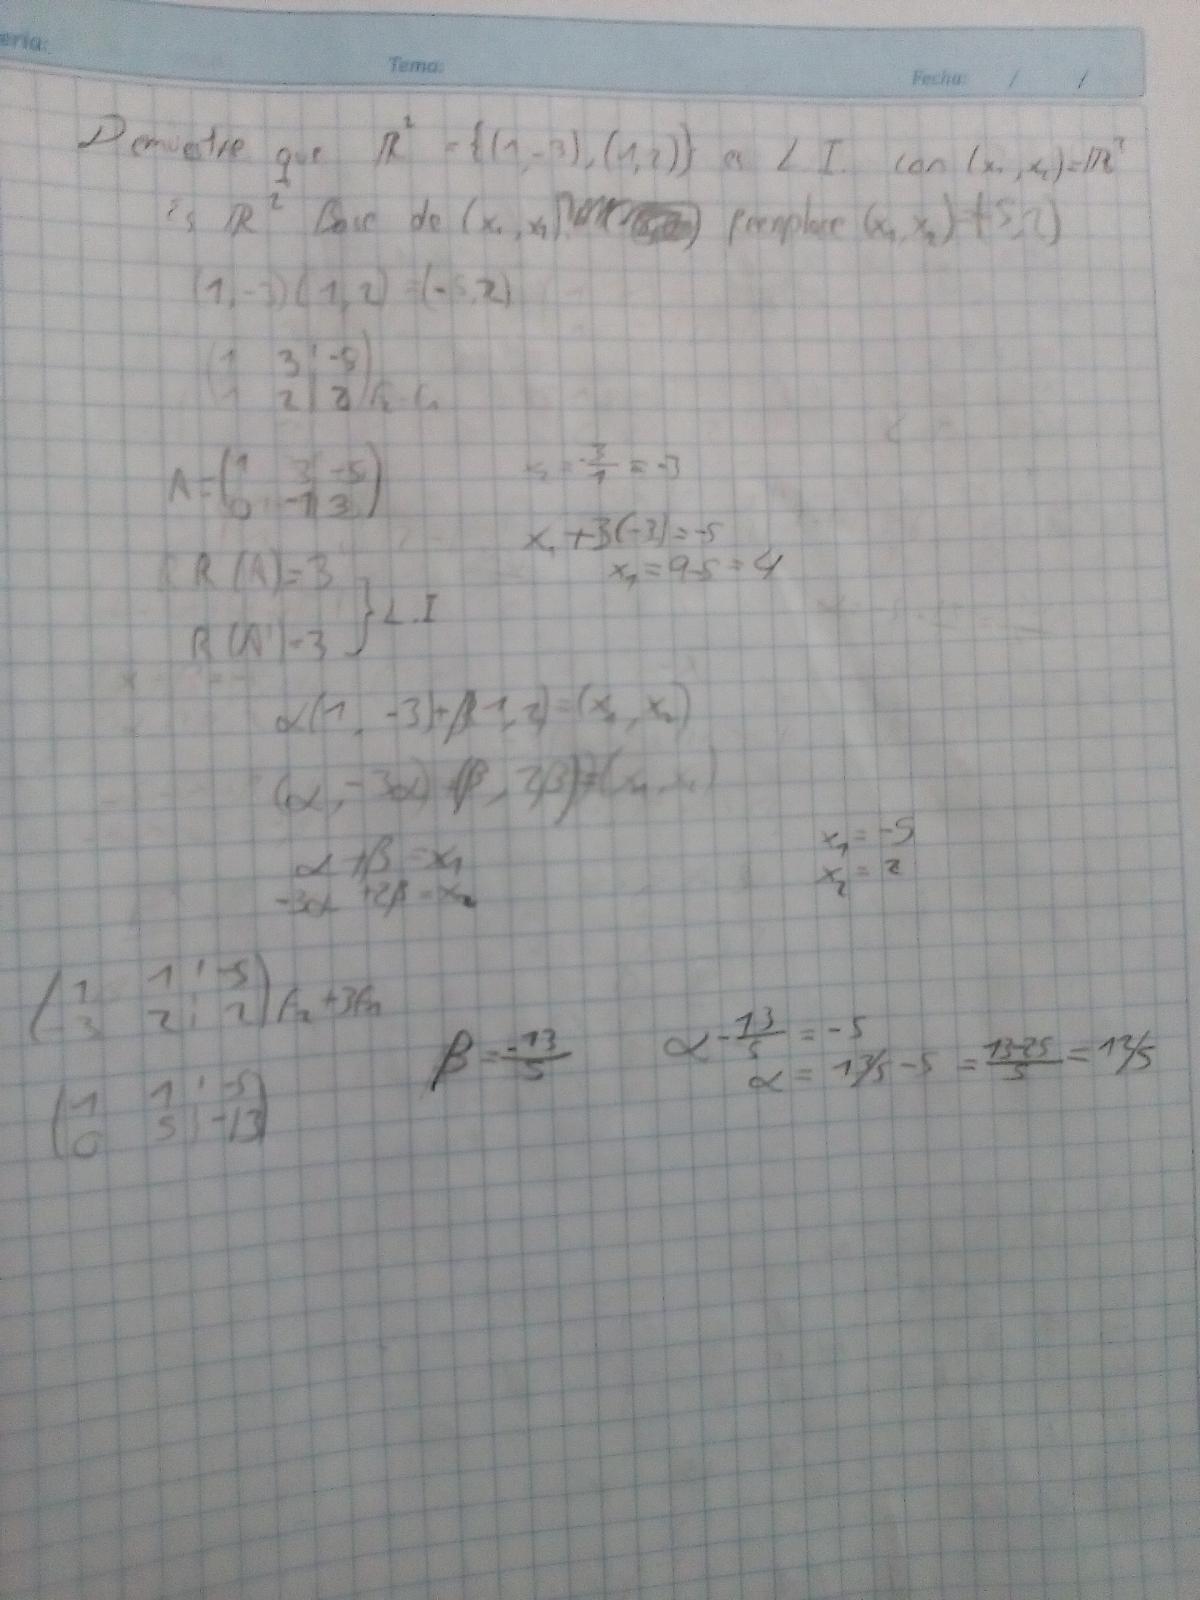 eria:
Tema:
Fecha: / /
Demuestre que R² = {(1,-3),(1,2)} es L I. con (x₁,x₂)=R²
is R² Base de (x₁,x₂) reemplace (x₁,x₂)=(-5,2)
(1,-3)(1,2)=(-5,2)
(1 3 | -5)
(1 2 | 2) f₂-f₁
A=(1 3 | -5)
(0 -1 | 3)
= -3/1 = -3
x₁+3(-3)=-5
x₁=9-5=4
R(A)=3
R(A')=3 } L.I
α(1,-3)+β(1,2)=(x₁,x₂)
(α,-3α)+(β,2β)=(x₁,x₂)
α+β=x₁
-3α+2β=x₂
x₁=-5
x₂=2
(1 1 | -5)
(-3 2 | 2) f₂+3f₁
(1 1 | -5)
(0 5 | -13)
β=-13/5
α-13/5=-5
α=13/5-5=13-25/5=12/5